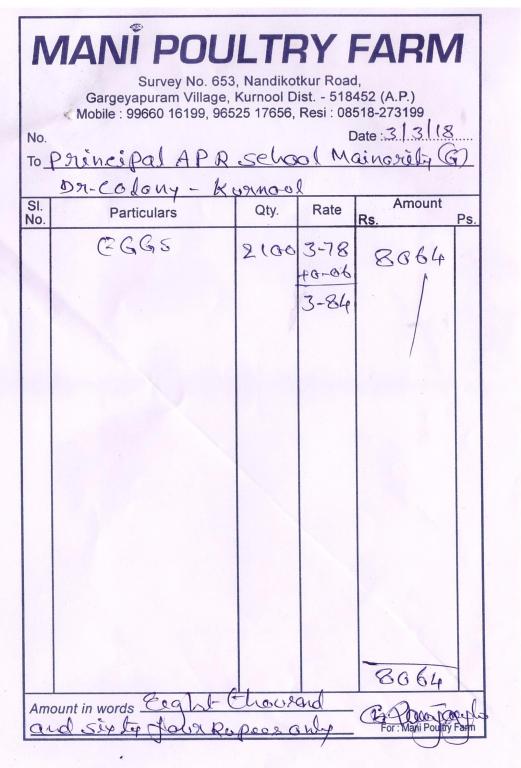 MANI POULTRY FARM
Survey No. 653, Nandikotkur Road,
Gargeyapuram Village, Kurnool Dist. - 518452 (A.P.)
Mobile : 99660 16199, 96525 17656, Resi : 08518-273199
No. Date : 3/3/18
To Principal APR school Mainority (G)
Dr-Colony - Kurnool
Sl. No. Particulars Qty. Rate Amount Rs. Ps.
EGGS 2100 3-78 8064
+0-06
3-84
8064
Amount in words Eeght thousand
and sixty four Rupees only
For : Mani Poultry Farm